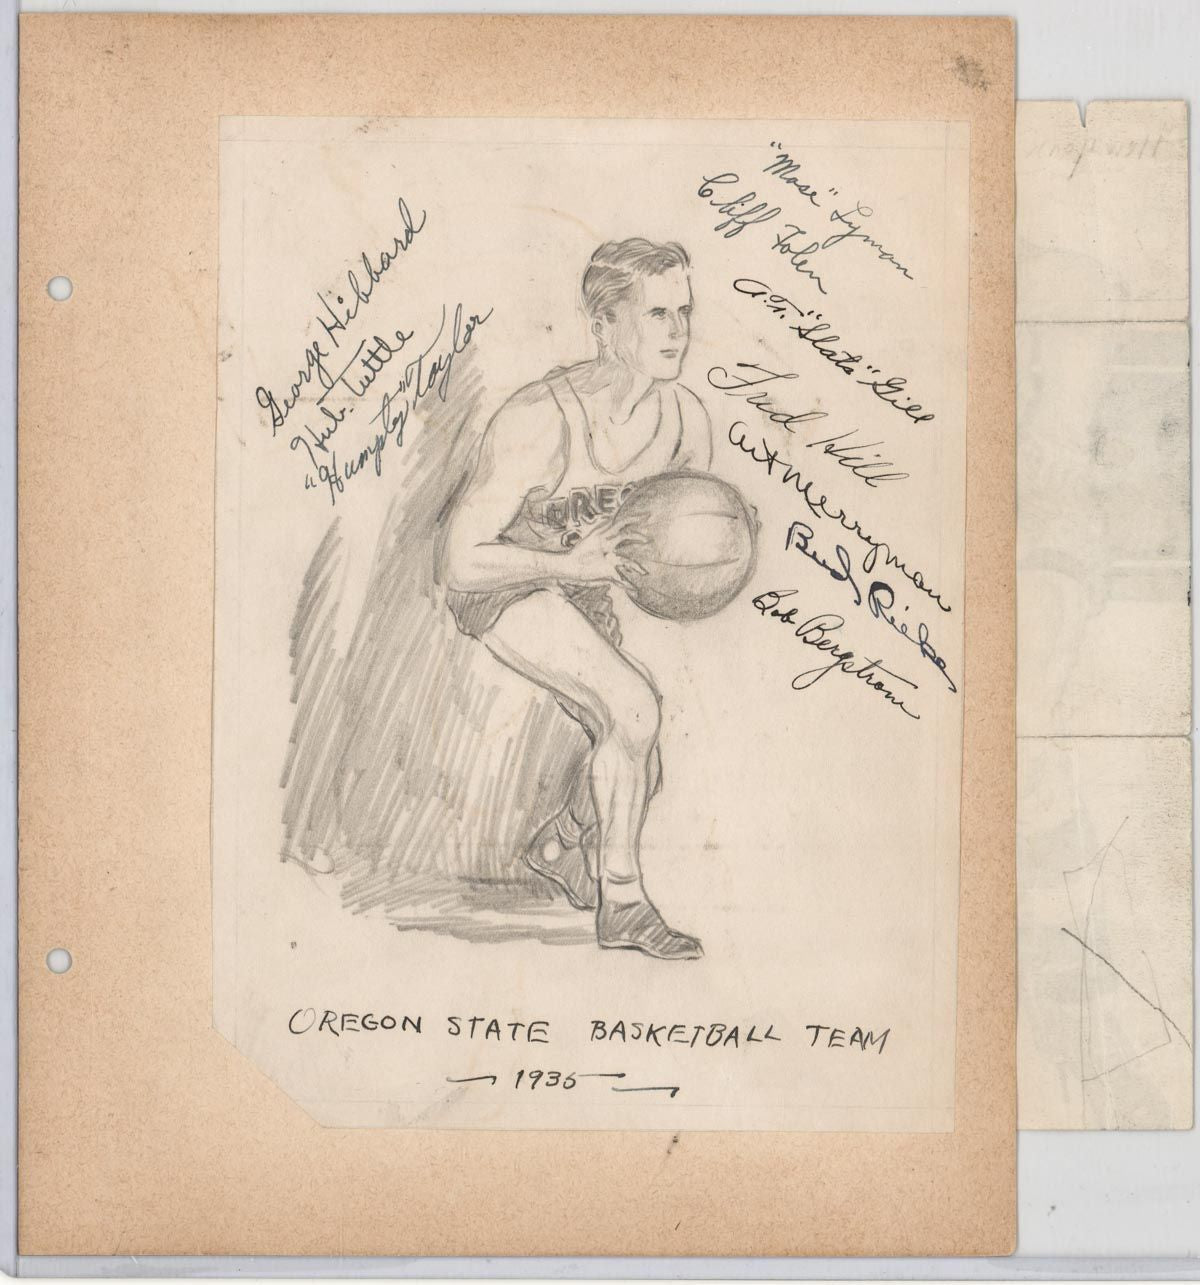 George Hibbard
Hub. Tuttle
"Humpty" Taylor
"Mose" Lyman
Cliff Folen
A.T. "Slats" Gill
Fred Hill
Art Merryman
Bud
Bob Bergstrom
ORE
OREGON STATE BASKETBALL TEAM
1935